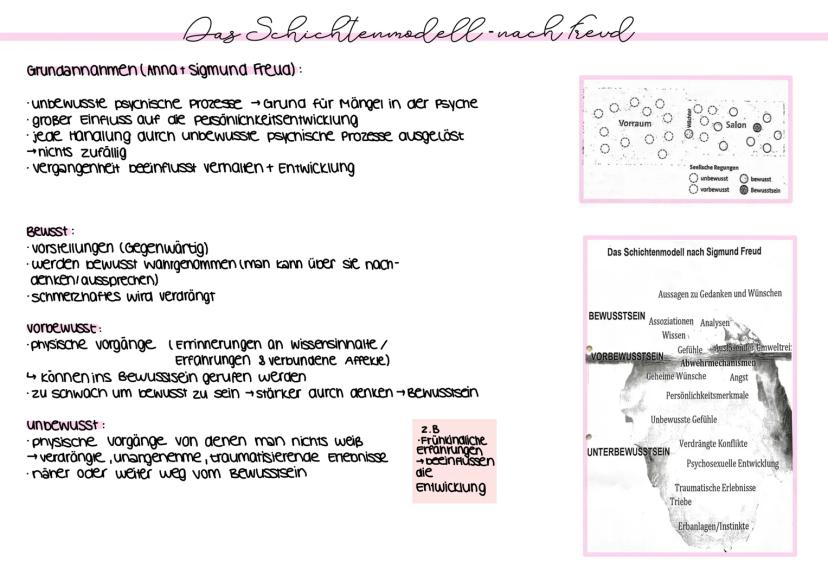 Das Schichtenmodell - nach Freud
Grundannahmen (Anna + Sigmund Freud) :
· unbewusste psychische Prozesse → Grund für Mängel in der Psyche
· großer Einfluss auf die Persönlichkeitsentwicklung
· jede Handlung durch unbewusste psychische Prozesse ausgelöst
→ nichts zufällig
· Vergangenheit beeinflusst Verhalten + Entwicklung
Bewusst :
· Vorstellungen (Gegenwärtig)
· werden bewusst wahrgenommen (man kann über sie nach-
denken/aussprechen)
· schmerzhaftes wird verdrängt
Vorbewusst :
· physische Vorgänge (Errinnerungen an Wissensinhalte /
Erfahrungen & verbundene Affekte)
↳ können ins Bewusstsein gerufen werden
· zu schwach um bewusst zu sein → stärker durch denken → Bewusstsein
unbewusst :
· physische Vorgänge von denen man nichts weiß
→ verdrängte, unangenehme, traumatisierende Erlebnisse
· näher oder weiter weg vom Bewusstsein
z.B
· Frühkindliche
Erfahrungen
→ beeinflussen
die
Entwicklung
Vorraum
Wächter
Salon
Seelische Regungen
unbewusst
bewusst
vorbewusst
Bewusstsein
Das Schichtenmodell nach Sigmund Freud
Aussagen zu Gedanken und Wünschen
BEWUSSTSEIN
Assoziationen
Analysen
Wissen
Gefühle
Auslösender Umweltrei:
VORBEWUSSTSEIN
Abwehrmechanismen
Geheime Wünsche
Angst
Persönlichkeitsmerkmale
Unbewusste Gefühle
Verdrängte Konflikte
UNTERBEWUSSTSEIN
Psychosexuelle Entwicklung
Traumatische Erlebnisse
Triebe
Erbanlagen/Instinkte